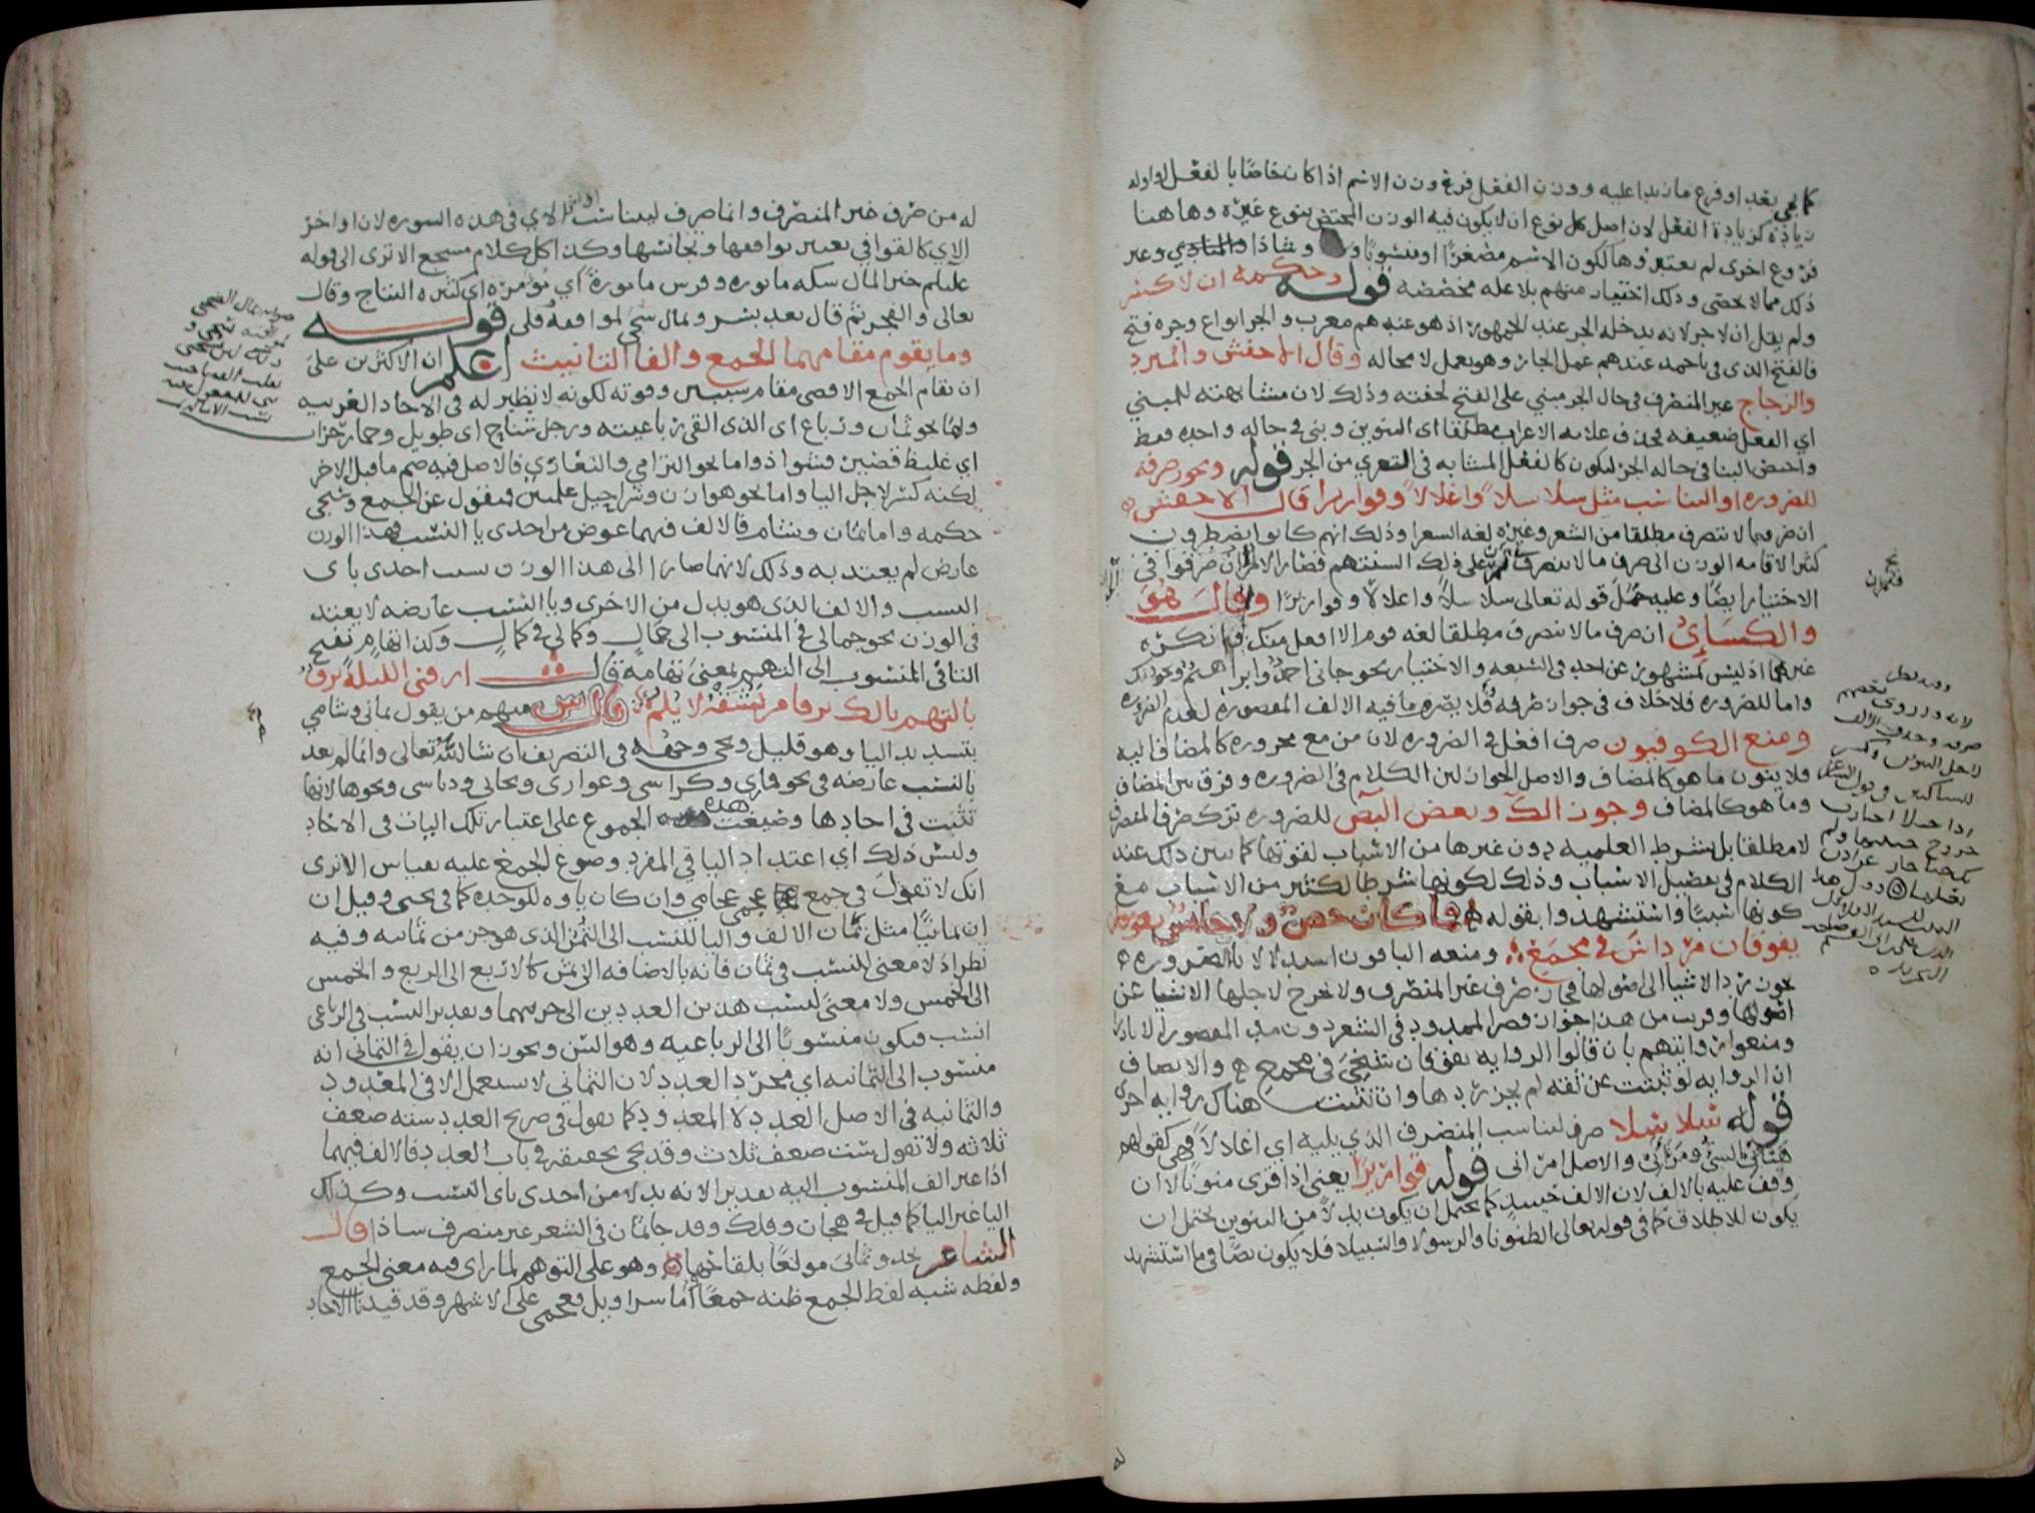 كما يجي بعد او فرع ما زيدا عليه ووزن الفعل فرع وزن الاسم اذا كان خاصا بالفعل او اوله
زيادة كزيادة الفعل لان اصل كل نوع ان لا يكون فيه الوزن المختص بنوع غيره وهاهنا
فروع اخرى لم يعتبروها ككون الاسم مصغرا او منسوبا و وشاذا وغير
ذلك مما لا يحصى وذلك اختيار منهم بلا علة مخصصة قوله وحكمه ان لا كسر
ولم يقل ان لا جر لانه يدخله الجر عند الجمهور اذ هو عندهم معرب والجر انواع وجره فتح
فالفتح الذي في باحمد عندهم عمل الجار وهو يعمل لا محالة وقال الاخفش والمبرد
والزجاج غير المنصرف في حال الجر مبني على الفتح لخفته وذلك لان مشابهته للمبني
اي الفعل ضعيفة فحذف علامة الاعراب مطلقا اي التنوين وبني في حالة واحدة فقط
واختص البنا في حالة الجر ليكون كالفعل المشابه في التعري من الجر قوله ويجوز صرفه
للضرورة او التناسب مثل سلاسلا واغلالا وقواريرا قال الاخفش
ان صرف ما لا ينصرف مطلقا من الشعر وغيره لغة الشعرا وذلك انهم كانوا يضطرون
كثيرا لاقامة الوزن الى صرف ما لا ينصرف فتمرن على ذلك السنتهم فصار الامر الى ان صرفوا في
الاختيار ايضا وعليه حمل قوله تعالى سلاسلا واغلالا وقواريرا وقال هو
والكسائي ان صرف ما لا ينصرف مطلقا لغة قوم الا افعل منك وانكره
غيرهما اذ ليس بمشهور عن احد في السعة والاختيار نحو جاني احمد وابراهيم ونحو ذلك
واما للضرورة فلا خلاف في جواز صرفه قلا يصرف ما فيه الالف المقصورة لعدم الضرورة
ومنع الكوفيون صرف افعل في الضرورة لان من مع مجروره كالمضاف اليه
فلا ينون ما هو كالمضاف والاصل الجواز لان الكلام في الضرورة وفرق بين المضاف
وما هو كالمضاف وجوز الك وبعض البص للضرورة ترك صرف المنصرف
لا مطلقا بل بشرط العلمية دون غيرها من الاسباب لقوتها كما تبين ذلك عند
الكلام في تفصيل الاسباب وذلك لكونها شرطا لكثير من الاسباب مع
كونها سببا واستشهدوا بقوله فما كان حصن ولا حابس يفوقان
يفوقان مرداس في مجمع ومنعه الباقون استدلالا بالضرورة
يجوز رد الاشيا الى اصولها فجاز صرف غير المنصرف ولا يخرج لاجلها الاشيا عن
اصولها وقريب من هذا جواز قصر الممدود في الشعر دون مد المقصور الا نادرا
ومنعوا روايتهم بان قالوا الرواية يفوقان شيخي في مجمع والانصاف
ان الرواية لو ثبتت عن ثقة لم يجز ردها وان ثبتت هناك رواية اخرى
قوله سلاسلا صرف ليناسب المنصرف الذي يليه اي اغلالا فهي كقولهم
هناني الشي ومراني والاصل امراني قوله قواريرا يعني اذا قري منونا لا ان
وقف عليه بالالف لان الالف حينئذ كما يحتمل ان يكون بدلا من التنوين يحتمل ان
يكون للاطلاق كما في قوله تعالى الظنونا والرسولا والسبيلا فلا يكون نصا في ما استشهد
له من صرف غير المنصرف وانما صرف ليناسب اواخر الاي في هذه السورة لان اواخر
الاي كالقوافي يعتبر توافقها وتجانسها وكذا كل كلام مسجع الا ترى الى قوله
عليلم خير المال سكة مابورة وفرس مامورة اي مؤمرة اي كثيرة النتاج وقال
تعالى والفجر ثم قال بعد يسر وقال سجى لموافقة قلى قوله
وما يقوم مقامهما الجمع والفا التانيث اعلم ان الاكثرين على
ان قام الجمع الاقصى مقام سببين وقوته لكونه لا نظير له في الاحاد العربية
واما نحو ثمان ورباع اي الذي القى رباعيته ورجل شناح اي طويل وحمار حزاب
اي غليظ قصير فشواذ واما نحو الترامي والتغازي فالاصل فيه ضم ما قبل الاخر
لكنه كسر لاجل اليا واما نحو هوازن وشراحيل علمين فمنقول عن الجمع ويجي
حكمه واما يمان وشام فالالف فيهما عوض من احدى يا النسب فهذا الوزن
عارض لم يعتد به وذلك لانهما صارا الى هذا الوزن بسبب احدى ياي
النسب والالف الذي هو بدل من الاخرى ويا النسب عارضة لا يعتد
في الوزن نحو جمالي في المنسوب الى جمال وكمالي في كمال وكذا تهام بفتح
التا في المنسوب الى التهم بمعنى تهامة قال ارقني الليلة برق
بالتهم يا لك برقا من يشقه لا يلم قال س منهم من يقول يماني وشامي
بتشديد اليا وهو قليل ويجي وجهه في التصريف ان شا الله تعالى وانما لم يعد
يا النسب عارضة في نحو قماري وكراسي وعواري وبخاتي ودباسي ونحوها لانها
تثبت في احادها وصيغت هذه الجموع على اعتبار تلك اليات في الاحاد
وليس ذلك اي اعتداد اليا في المفرد وصوغ الجمع عليه بقياس الا ترى
انك لا تقول في جمع عجمي عجامي وان كان ياوه للوحدة كما في بختي وقيل ان
ان ثمانيا مثل يمان الالف واليا للنسب الى الثمن الذي هو جز من ثمانية وفيه
نظر اذ لا معنى للنسب في ثمان فانه بالاضافة الى ثمن كالاربع الى الربع والخمس
الى الخمس ولا معنى لنسب هذين العددين الى جزيهما وتقدير النسب في الرباعي
انسب فيكون منسوبا الى الرباعية وهو السن ويجوز ان يقول في الثماني انه
منسوب الى الثمانية اي مجرد العدد لان الثماني لا يستعمل الا في المعدود
والثمانية في الاصل العدد لا المعدود كما تقول في صريح العدد ستة ضعف
ثلاثة ولا تقول ست ضعف ثلاث وقد يجي تحقيقه في باب العدد فالالف فيهما
اذا غير الف المنسوب اليه تقديرا لانه بدلا من احدى ياي النسب وكذلك
اليا غير اليا كما قيل في هجان وفلك وقد جا ثمان في الشعر غير منصرف شاذا قال
الشاعر يحدو ثماني مولعا بلقاحها وهو على التوهم لما راى فيه معنى الجمع
ولفظه شبه لفظ الجمع ظنه جمعا اما سراويل فعجمي على الاشهر وقد قيدنا بالاحاد